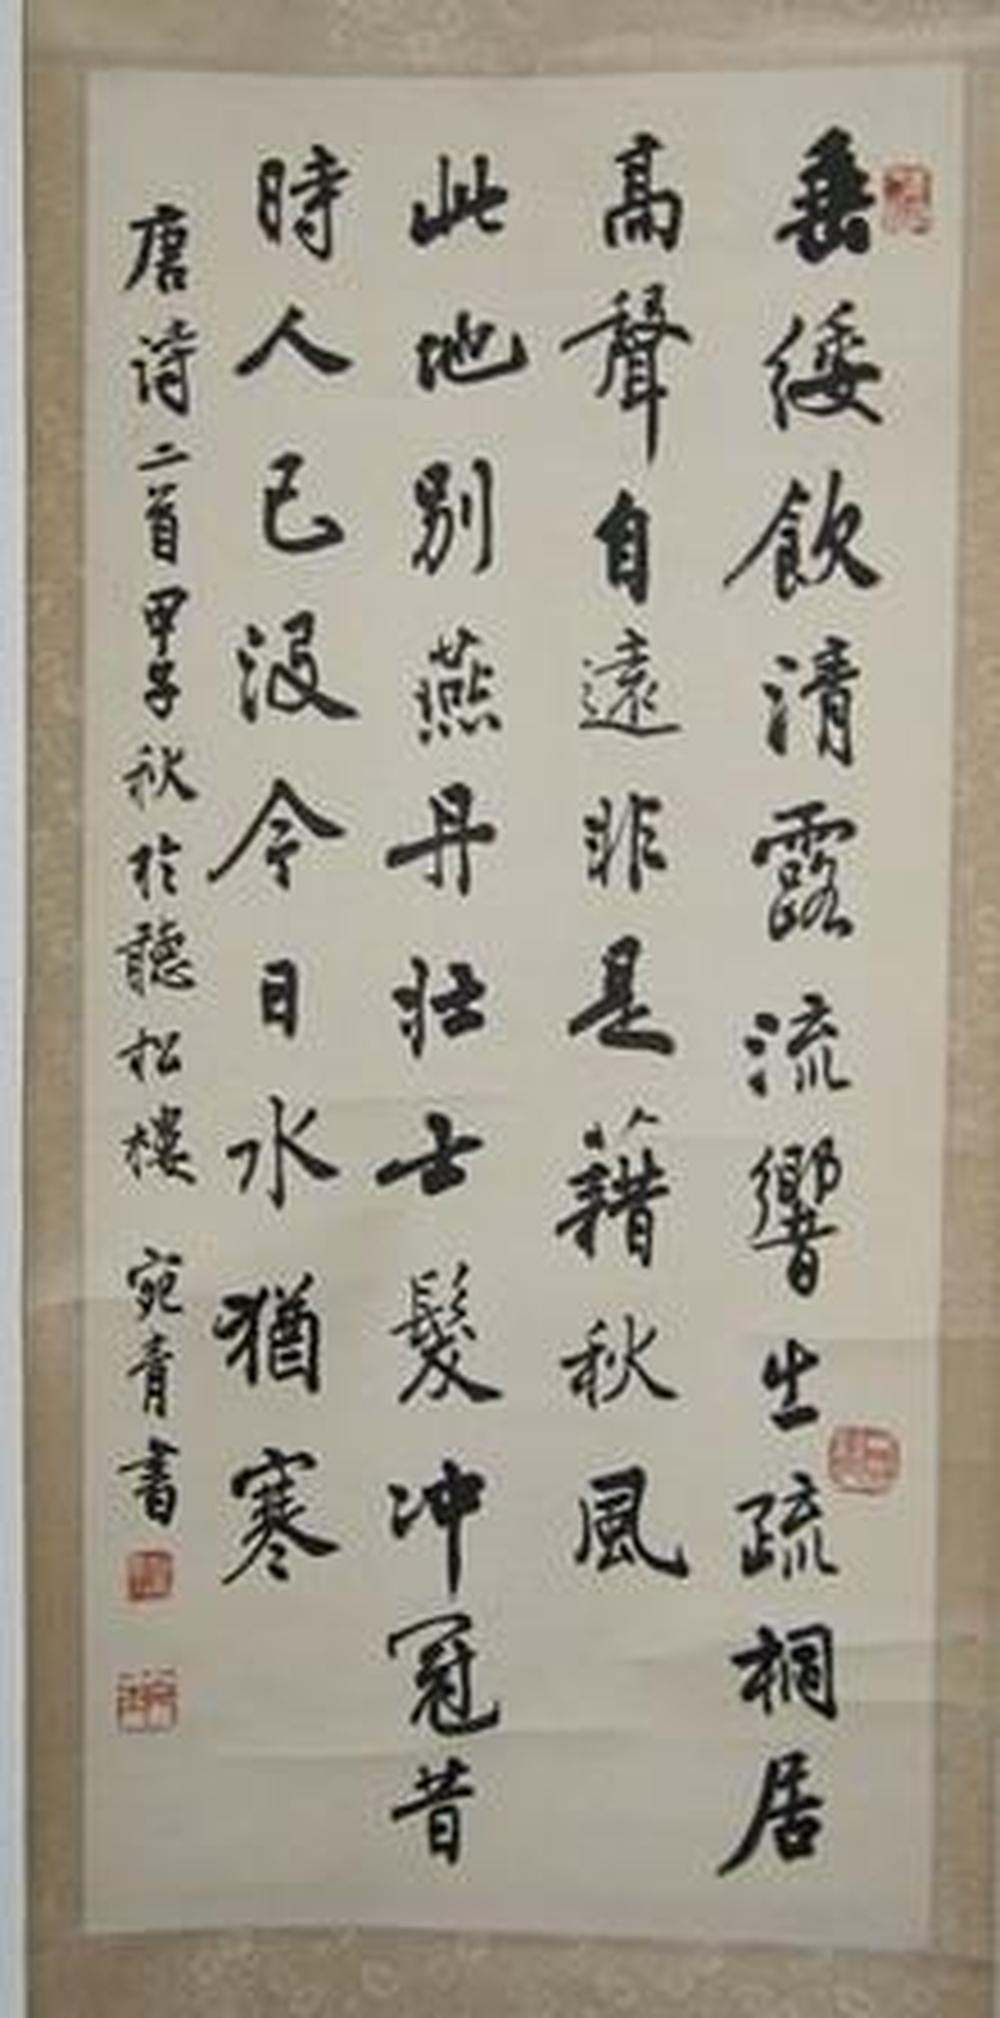 垂緌飲清露流響生疏桐居
高聲自遠非是藉秋風
此地別燕丹壯士髮冲冠昔
時人已没今日水猶寒
唐诗二首甲子秋於聽松樓 宛青書